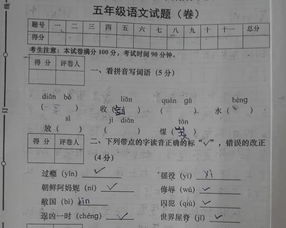 五年级语文试题（卷）
题号 一 二 三 四 五 六 七 八 九 十 十一 总分
得分
考生注意：本试卷满分 100 分，考试时间 90 分钟。
得分 评卷人
一、看拼音写词语（5 分）
diān bǒ liǎn quán gǔ bèng
（ ） 收（ ） （ ） 水（ ）
sì jī diàn
放（ ） （ ） 煤（ ）
得分 评卷人
二、下列带点的字读音正确的标“√”，错误的改正
（4 分）
过瘾（yǐn） √ 徭役（yì） yì
朝鲜阿妈妮（ní） √ 侮辱（wǔ） √
敌国（bì） bìn 囚犯（qiú） √
逞凶一时（chěng） √ 世界屋脊（jǐ） √